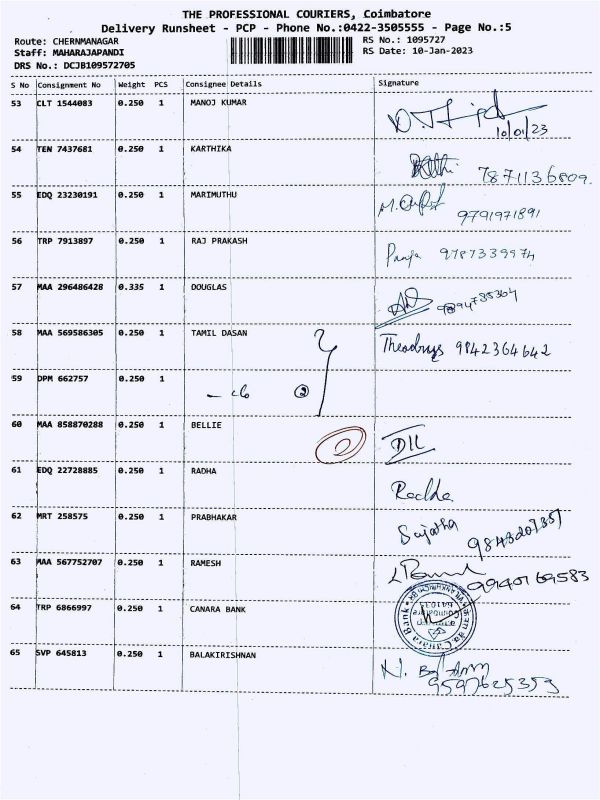 THE PROFESSIONAL COURIERS, Coimbatore
Delivery Runsheet - PCP - Phone No.:0422-3505555 - Page No.:5
Route: CHERNMANAGAR
Staff: MAHARAJAPANDI
DRS No.: DCJB109572705
RS No.: 1095727
RS Date: 10-Jan-2023
S No Consignment No Weight PCS Consignee Details Signature
53 CLT 1544083 0.250 1 MANOJ KUMAR
10/01/23
54 TEN 7437681 0.250 1 KARTHIKA 7871136809
55 EDQ 23230191 0.250 1 MARIMUTHU 9791971891
56 TRP 7913897 0.250 1 RAJ PRAKASH 9787339974
57 MAA 296486428 0.335 1 DOUGLAS
58 MAA 569586305 0.250 1 TAMIL DASAN 9842364642
59 DPM 662757 0.250 1
60 MAA 858870288 0.250 1 BELLIE
61 EDQ 22728885 0.250 1 RADHA
62 MRT 258575 0.250 1 PRABHAKAR Sujatha 9843207357
63 MAA 567752707 0.250 1 RAMESH 9940169583
64 TRP 6866997 0.250 1 CANARA BANK
Canara Bank
65 SVP 645813 0.250 1 BALAKIRISHNAN
9597625353